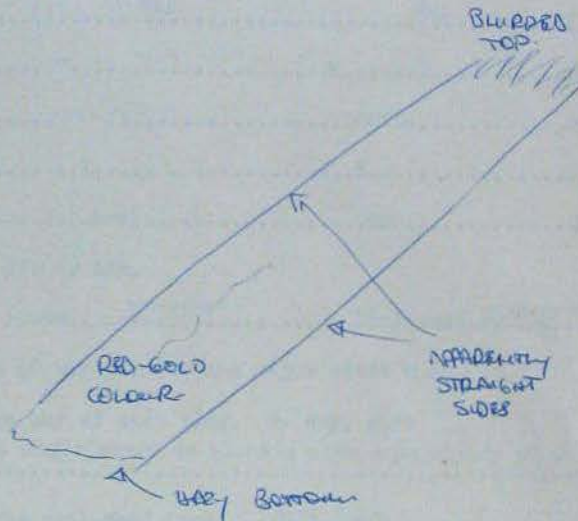 BLURRED
TOP.
RED-GOLD
COLOUR
APPARENTLY
STRAIGHT
SIDES
HAZY BOTTOM